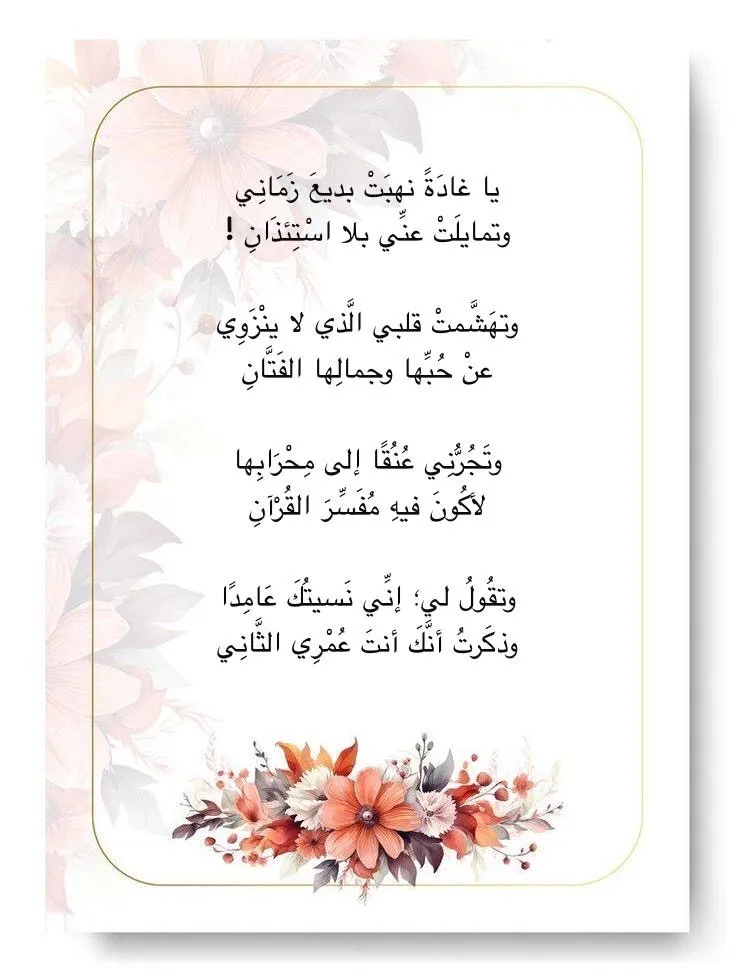 يا غادَةً نهبَتْ بديعَ زَمَانِي
وتمايلَتْ عنِّي بلا اسْتِئذَانِ !
وتهَشَّمتْ قلبي الَّذي لا ينْزَوِي
عنْ حُبِّها وجمالِها الفَتَّانِ
وتَجُرُّنِي عُنُقًا إلى مِحْرَابِها
لأكُونَ فيهِ مُفَسِّرَ القُرْآنِ
وتقُولُ لي؛ إنِّي نَسيتُكَ عَامِدًا
وذكَرتُ أنَّكَ أنتَ عُمْرِي الثَّانِي